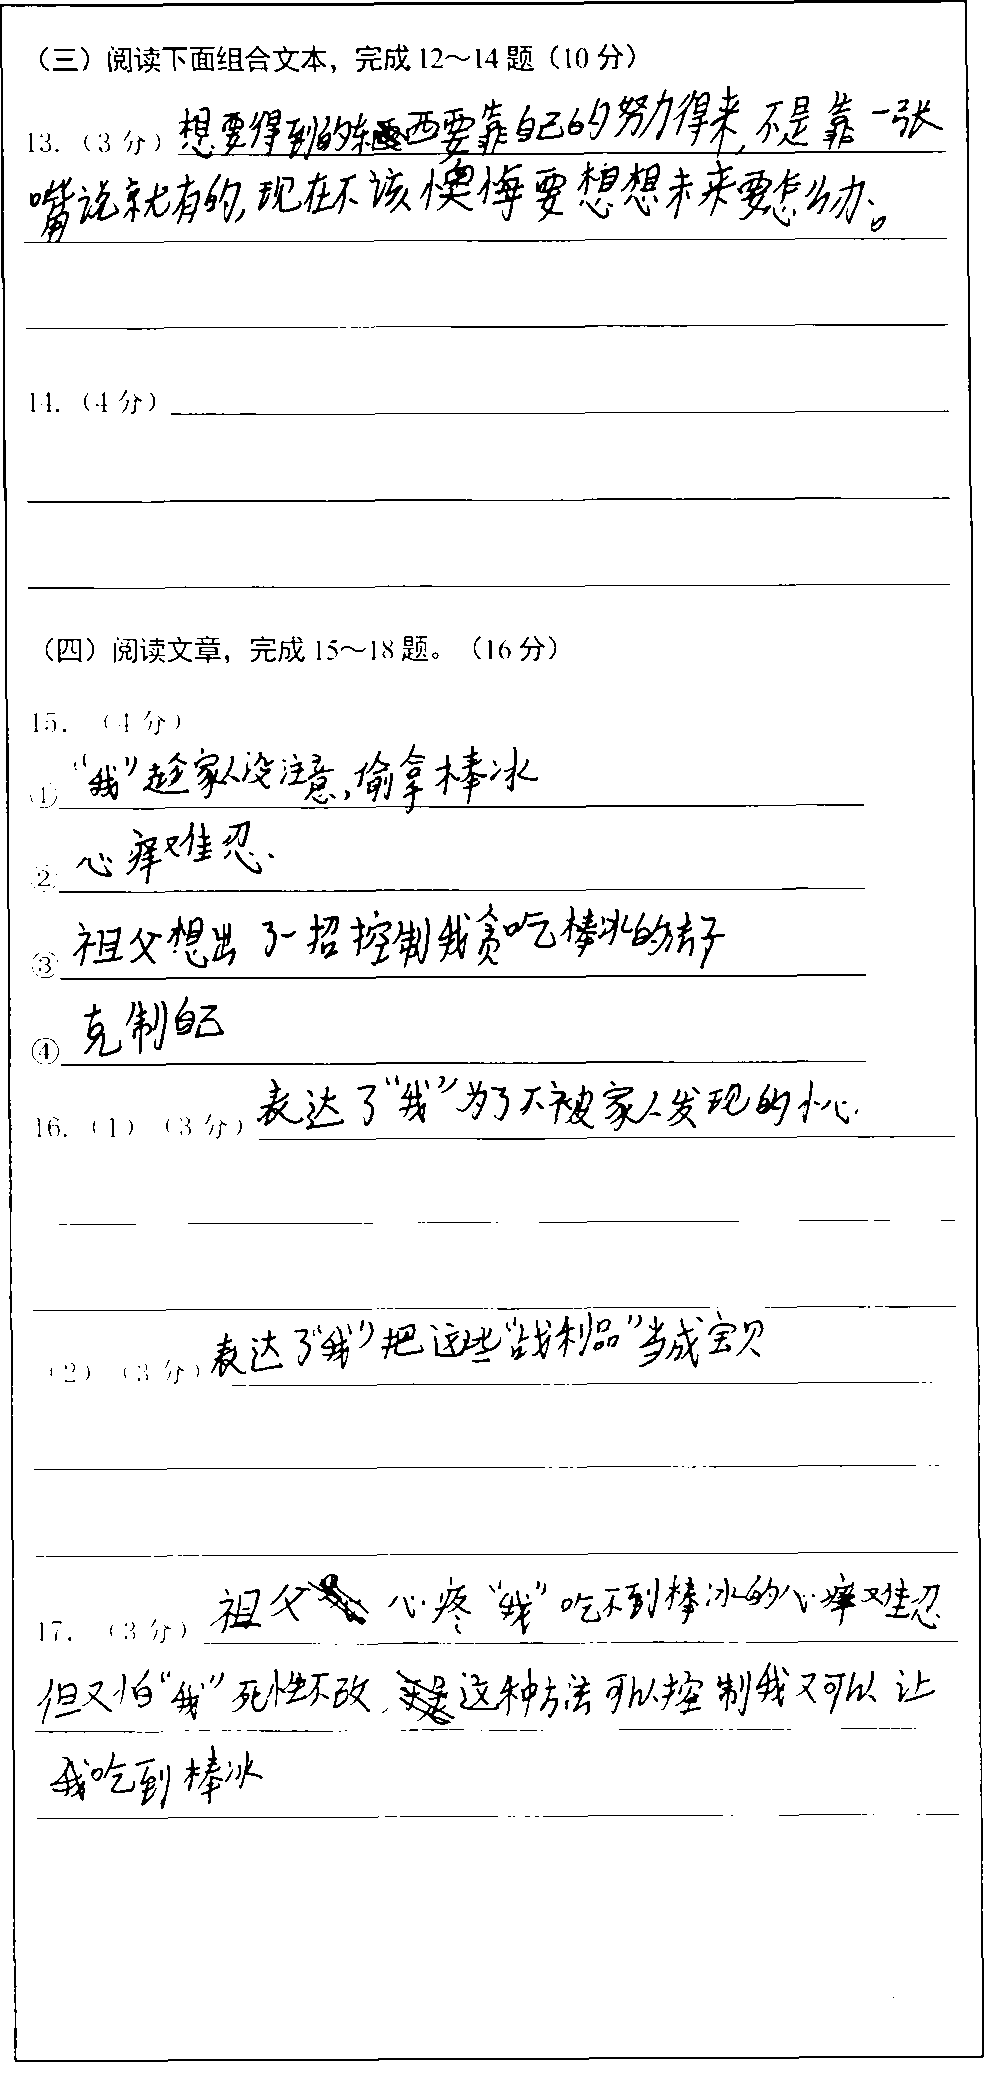 （三）阅读下面组合文本，完成12～14题（10分）
13.（3分）想要得到的东西要靠自己的努力得来,不是靠一张
嘴说就有的,现在不该懊悔要想想未来要怎么办。
14.（4分）
（四）阅读文章，完成15～18题。（16分）
15.（4分）
① “我”趁家人没注意,偷拿棒冰
② 心痒难忍.
③ 祖父想出了一招控制我贪吃棒冰的法子
④ 克制自己
16.（1）（3分）表达了“我”为了不被家人发现的小心.
（2）（3分）表达了“我”把这些“战利品”当成宝贝
17.（3分）祖父 心疼“我”吃不到棒冰的心痒难忍
但又怕“我”死性不改, 这种方法可以控制我又可以让
我吃到棒冰